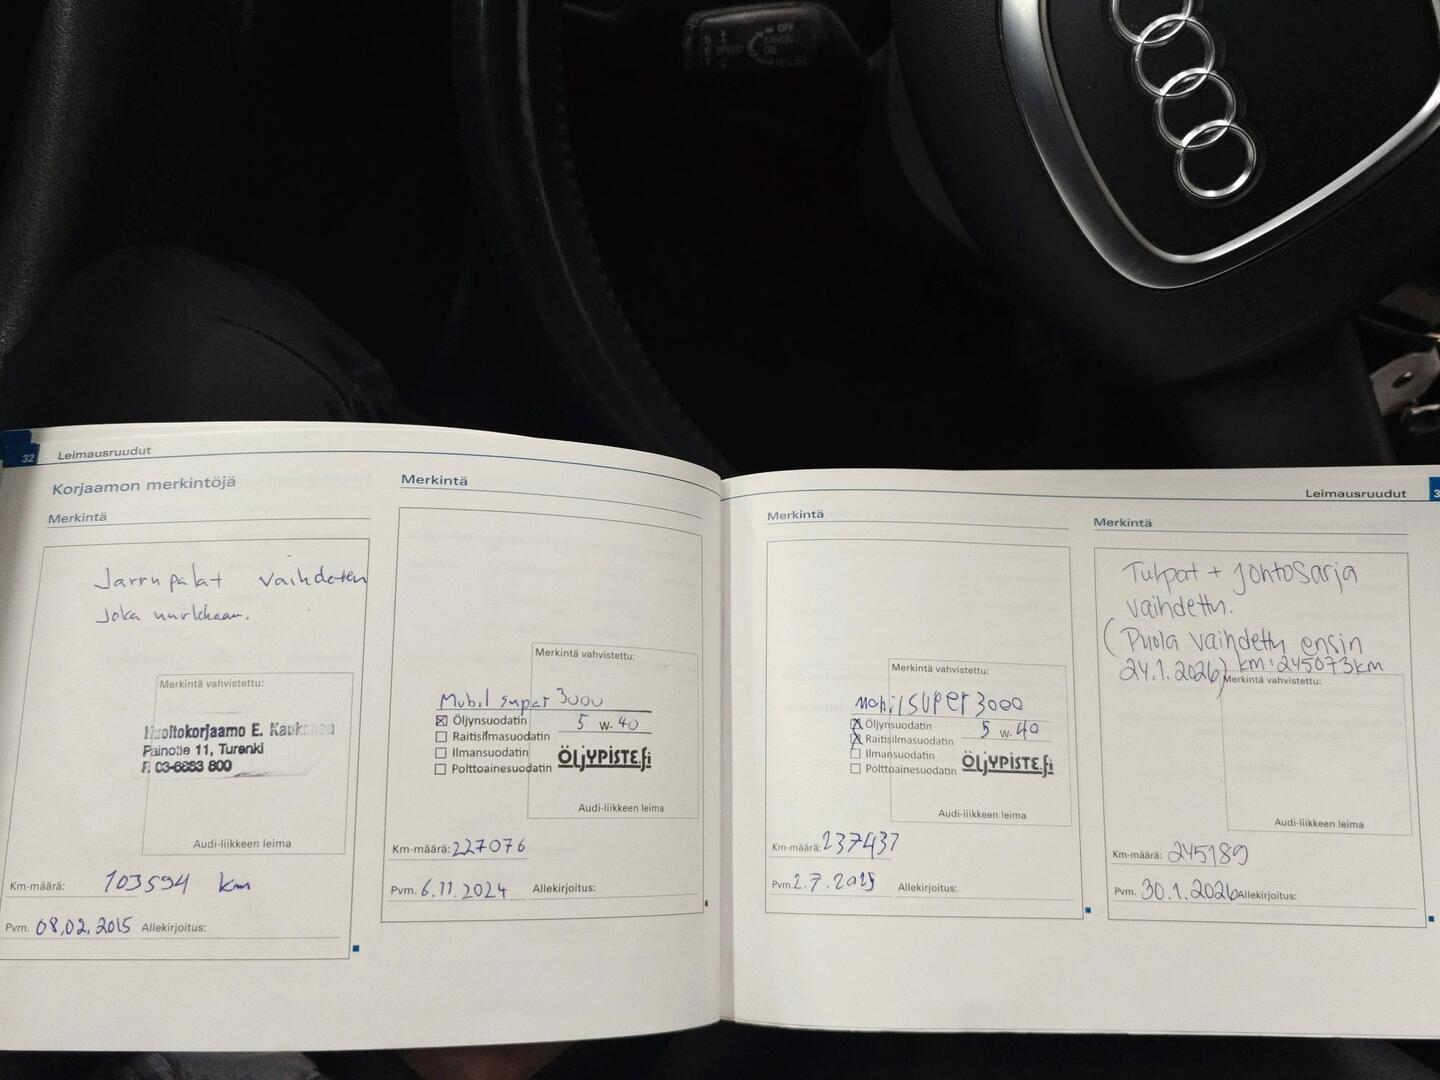 OFF
CANCEL
ON
SPEED
32
Leimausruudut
Korjaamon merkintöjä
Merkintä
Jarrupalat vaihdeten
Joka nurkkaan.
Merkintä vahvistettu:
Huoltokorjaamo E. Kaukonen
Painotie 11, Turenki
P. 03-6883 800
Audi-liikkeen leima
Km-määrä: 103594 km
Pvm. 08.02.2015 Allekirjoitus:
Merkintä
Merkintä vahvistettu:
Mobil super 3000
Öljynsuodatin 5 W-40
Raitisilmasuodatin
Ilmansuodatin
Polttoainesuodatin
ÖLJYPISTE.fi
Audi-liikkeen leima
Km-määrä: 227076
Pvm. 6.11.2024 Allekirjoitus:
Leimausruudut
Merkintä
Merkintä vahvistettu:
mobil super 3000
Öljynsuodatin 5 W-40
Raitisilmasuodatin
Ilmansuodatin
Polttoainesuodatin
ÖLJYPISTE.fi
Audi-liikkeen leima
Km-määrä: 237437
Pvm. 2.7.2025 Allekirjoitus:
Merkintä
Tulpat + johtosarja
vaihdettu.
(Puola vaihdettu ensin
24.1.2026) km: 245073km
Merkintä vahvistettu:
Audi-liikkeen leima
Km-määrä: 245189
Pvm. 30.1.2026 Allekirjoitus: